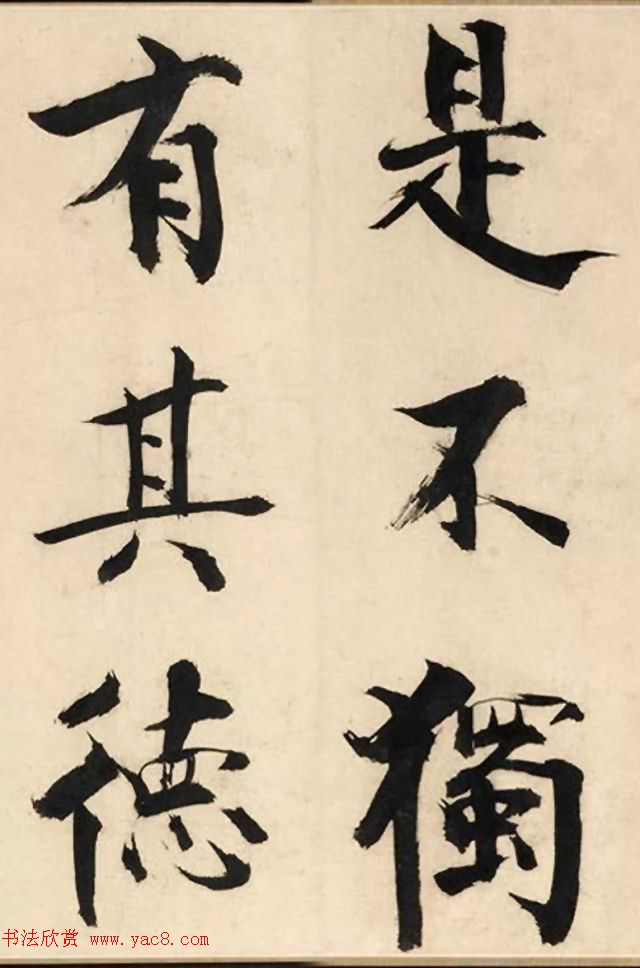 是不獨
有其德
书法欣赏 www.yac8.com